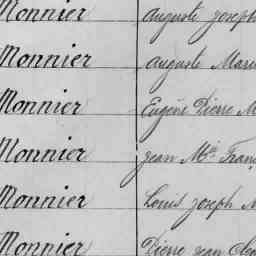 Monnier Auguste Joseph
Monnier Auguste Marie
Monnier Eugène Pierre M
Monnier Jean Mie Franç
Monnier Louis Joseph M
Monnier Pierre Jean